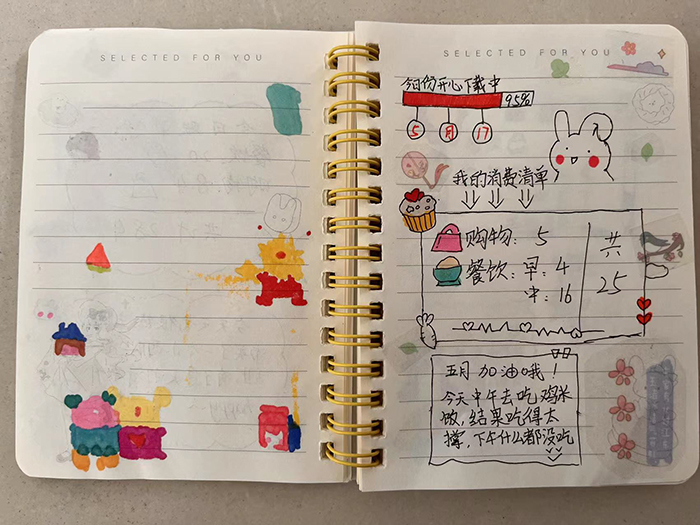 SELECTED FOR YOU
SELECTED FOR YOU
今日份开心下载中
95%
5 月 17
我的消费清单
购物: 5
餐饮: 早: 4
中: 16
共
25
五月加油哦!
今天中午去吃鸡米
饭,结果吃得太
撑,下午什么都没吃